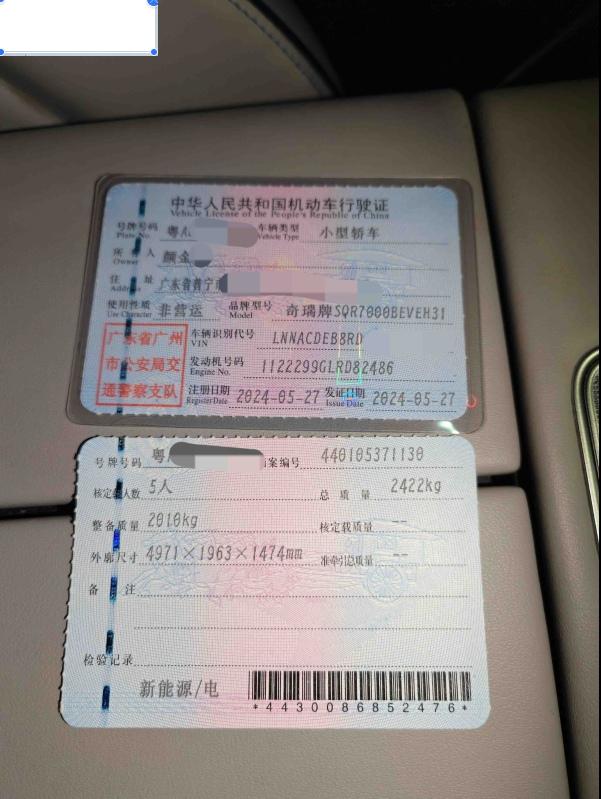 中华人民共和国机动车行驶证
Vehicle License of the People's Republic of China
号牌号码 粤A 车辆类型 小型轿车
Plate No. Vehicle Type
所有人 颜金
Owner
住址 广东省普宁市
Address
使用性质 非营运 品牌型号 奇瑞牌SQR7000BEVEH31
Use Character Model
广东省广州市公安局交通警察支队
车辆识别代号 LNNACDEB8RD
VIN
发动机号码 1122299GLRD82486
Engine No.
注册日期 2024-05-27 发证日期 2024-05-27
Register Date Issue Date
号牌号码 粤 档案编号 440105371130
核定载人数 5人 总质量 2422kg
整备质量 2010kg 核定载质量 --
外廓尺寸 4971×1963×1474mm 准牵引总质量 --
备注
检验记录
新能源/电
*4430086852476*